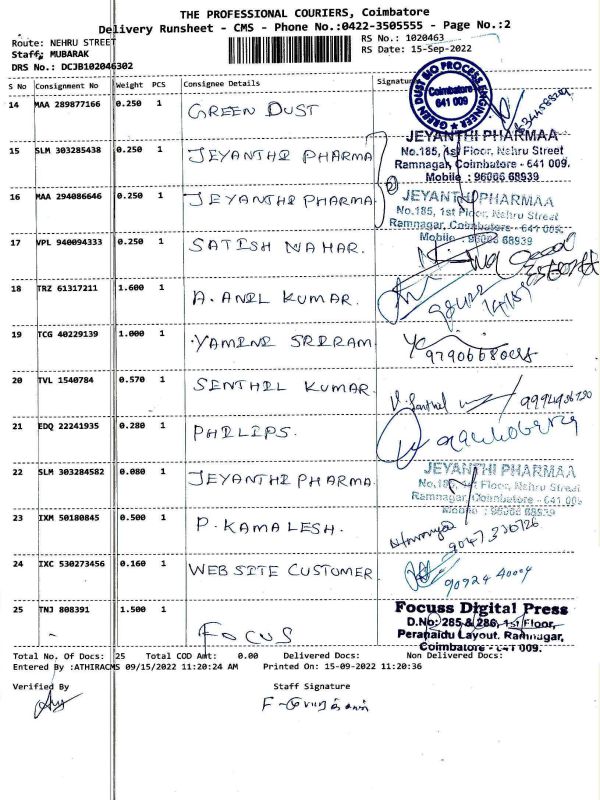 THE PROFESSIONAL COURIERS, Coimbatore
Delivery Runsheet - CMS - Phone No.:0422-3505555 - Page No.:2
Route: NEHRU STREET
RS No.: 1020463
Staff: MUBARAK
RS Date: 15-Sep-2022
DRS No.: DCJB102046302
S No Consignment No Weight PCS Consignee Details Signature
GREEN DUST BIO PROCESS ENGINEER
Coimbatore
641 009
14 MAA 289877166 0.250 1 GREEN DUST
JEYANTHI PHARMAA
15 SLM 303285438 0.250 1 JEYANTHI PHARMA
No.185, 1st Floor, Nehru Street
Ramnagar, Coimbatore - 641 009.
Mobile : 96066 68939
16 MAA 294086646 0.250 1 JEYANTHI PHARMA
JEYANTHI PHARMAA
No.185, 1st Floor, Nehru Street
Ramnagar, Coimbatore - 641 009.
Mobile : 96066 68939
17 VPL 940094333 0.250 1 SATISH NAHAR.
18 TRZ 61317211 1.600 1 A. ANIL KUMAR.
19 TCG 40229139 1.000 1 YAMINI SRIRAM
20 TVL 1540784 0.570 1 SENTHIL KUMAR.
21 EDQ 22241935 0.280 1 PHILIPS.
22 SLM 303284582 0.080 1 JEYANTHI PHARMA
JEYANTHI PHARMAA
No.185, 1st Floor, Nehru Street
Ramnagar, Coimbatore - 641 009
Mobile : 96066 68939
23 IXM 50180845 0.500 1 P. KAMALESH.
24 IXC 530273456 0.160 1 WEBSITE CUSTOMER
25 TNJ 808391 1.500 1 FOCUS
Focuss Digital Press
D.No: 285 & 286, 1st Floor,
Peranaidu Layout, Ramnagar,
Coimbatore - 641 009.
Total No. Of Docs: 25 Total COD Amt: 0.00 Delivered Docs: Non Delivered Docs:
Entered By :ATHIRACMS 09/15/2022 11:20:24 AM Printed On: 15-09-2022 11:20:36
Verified By Staff Signature